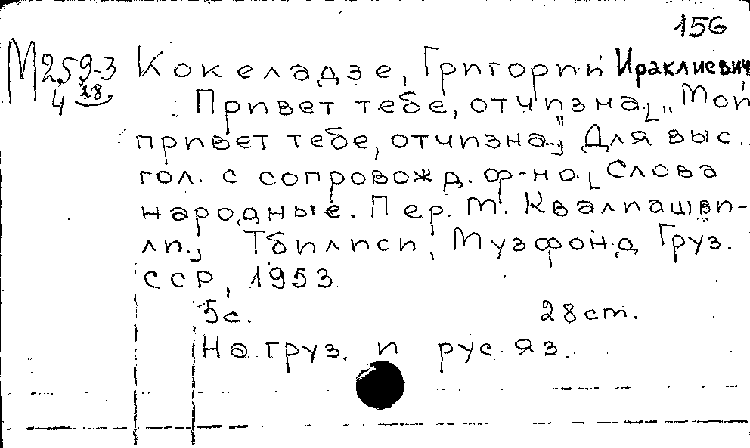 156
М259-3 Кокеладзе, Григорий Ираклиевич
4 28 Привет тебе, отчизна [„Мой
привет тебе, отчизна"] Для выс.
гол. с сопровожд. ф-но [Слова
народные. Пер. М. Квалиашви-
ли.] Тбилиси, Музфонд Груз.
ССР, 1953
5с. 28 ст.
На груз. и рус. яз.